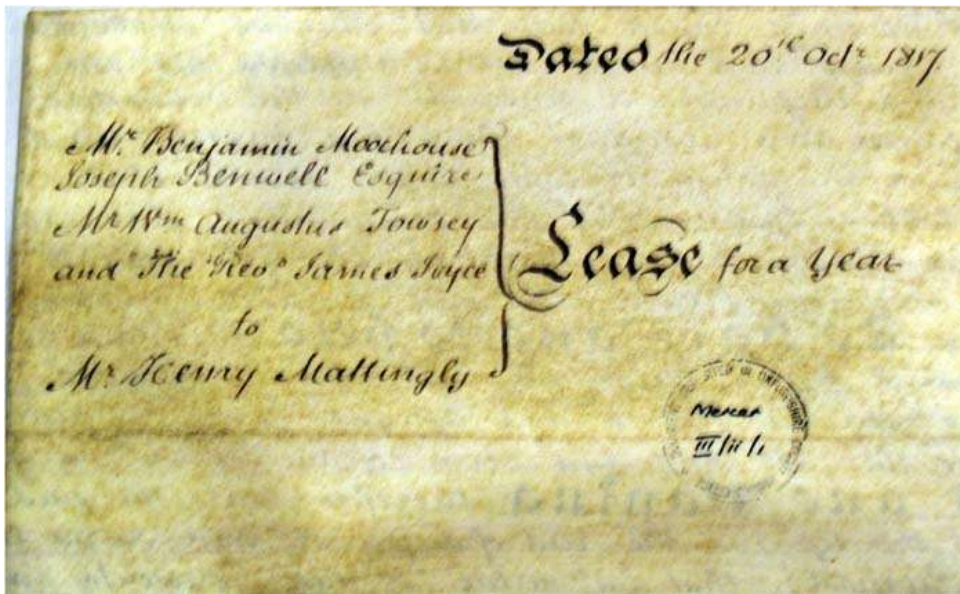 Dated the 20th Octr 1817.
Mr. Benjamin Moorhouse
Joseph Benwell Esquire
Mr Wm Augustus Towsey
and The Revd James Joyce
Lease for a Year
to
Mr Henry Mattingly
OXFORDSHIRE
Mercer
III/ii/1